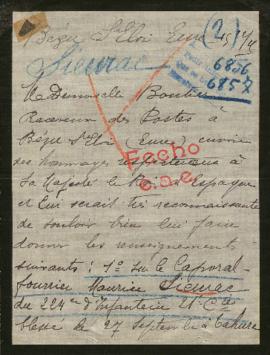 Bézu St Eloi Eure
(2)
Sieurac
6856
6857
Mademoiselle
Receveuse des Postes à
Bézu St Eloi (Eure) envoie
ses hommages respectueux à
Sa Majesté le Roi d'Espagne
et Lui serait très reconnaissante
de vouloir bien lui faire
donner les renseignements
suivants : 1° sur le Caporal
fourrier Maurice Sieurac
du 224e d'Infanterie 21e Cie
blessé le 27 Septembre à Tahure
Fecho